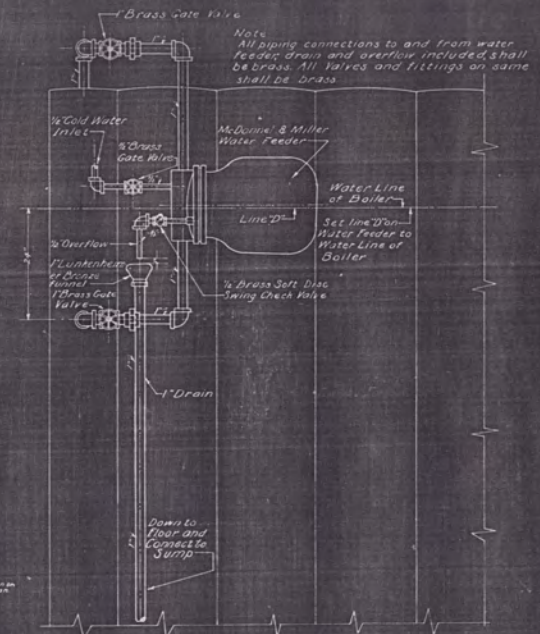 1" Brass Gate Valve
Note
All piping connections to and from water
feeder, drain and overflow included, shall
be brass. All Valves and fittings on same
shall be brass
1"
1"
½" Cold Water
Inlet
½" Brass
Gate Valve
McDonnel & Miller
Water Feeder
Water Line
of Boiler
Line "D"
Set Line "D" on
Water Feeder to
Water Line of
Boiler
24"
½" Overflow
1" Lunkenheim
er Bronze
funnel
1" Brass Gate
Valve
½" Brass Soft Disc
Swing Check Valve
1"
1" Drain
Down to
Floor and
Connect to
Sump